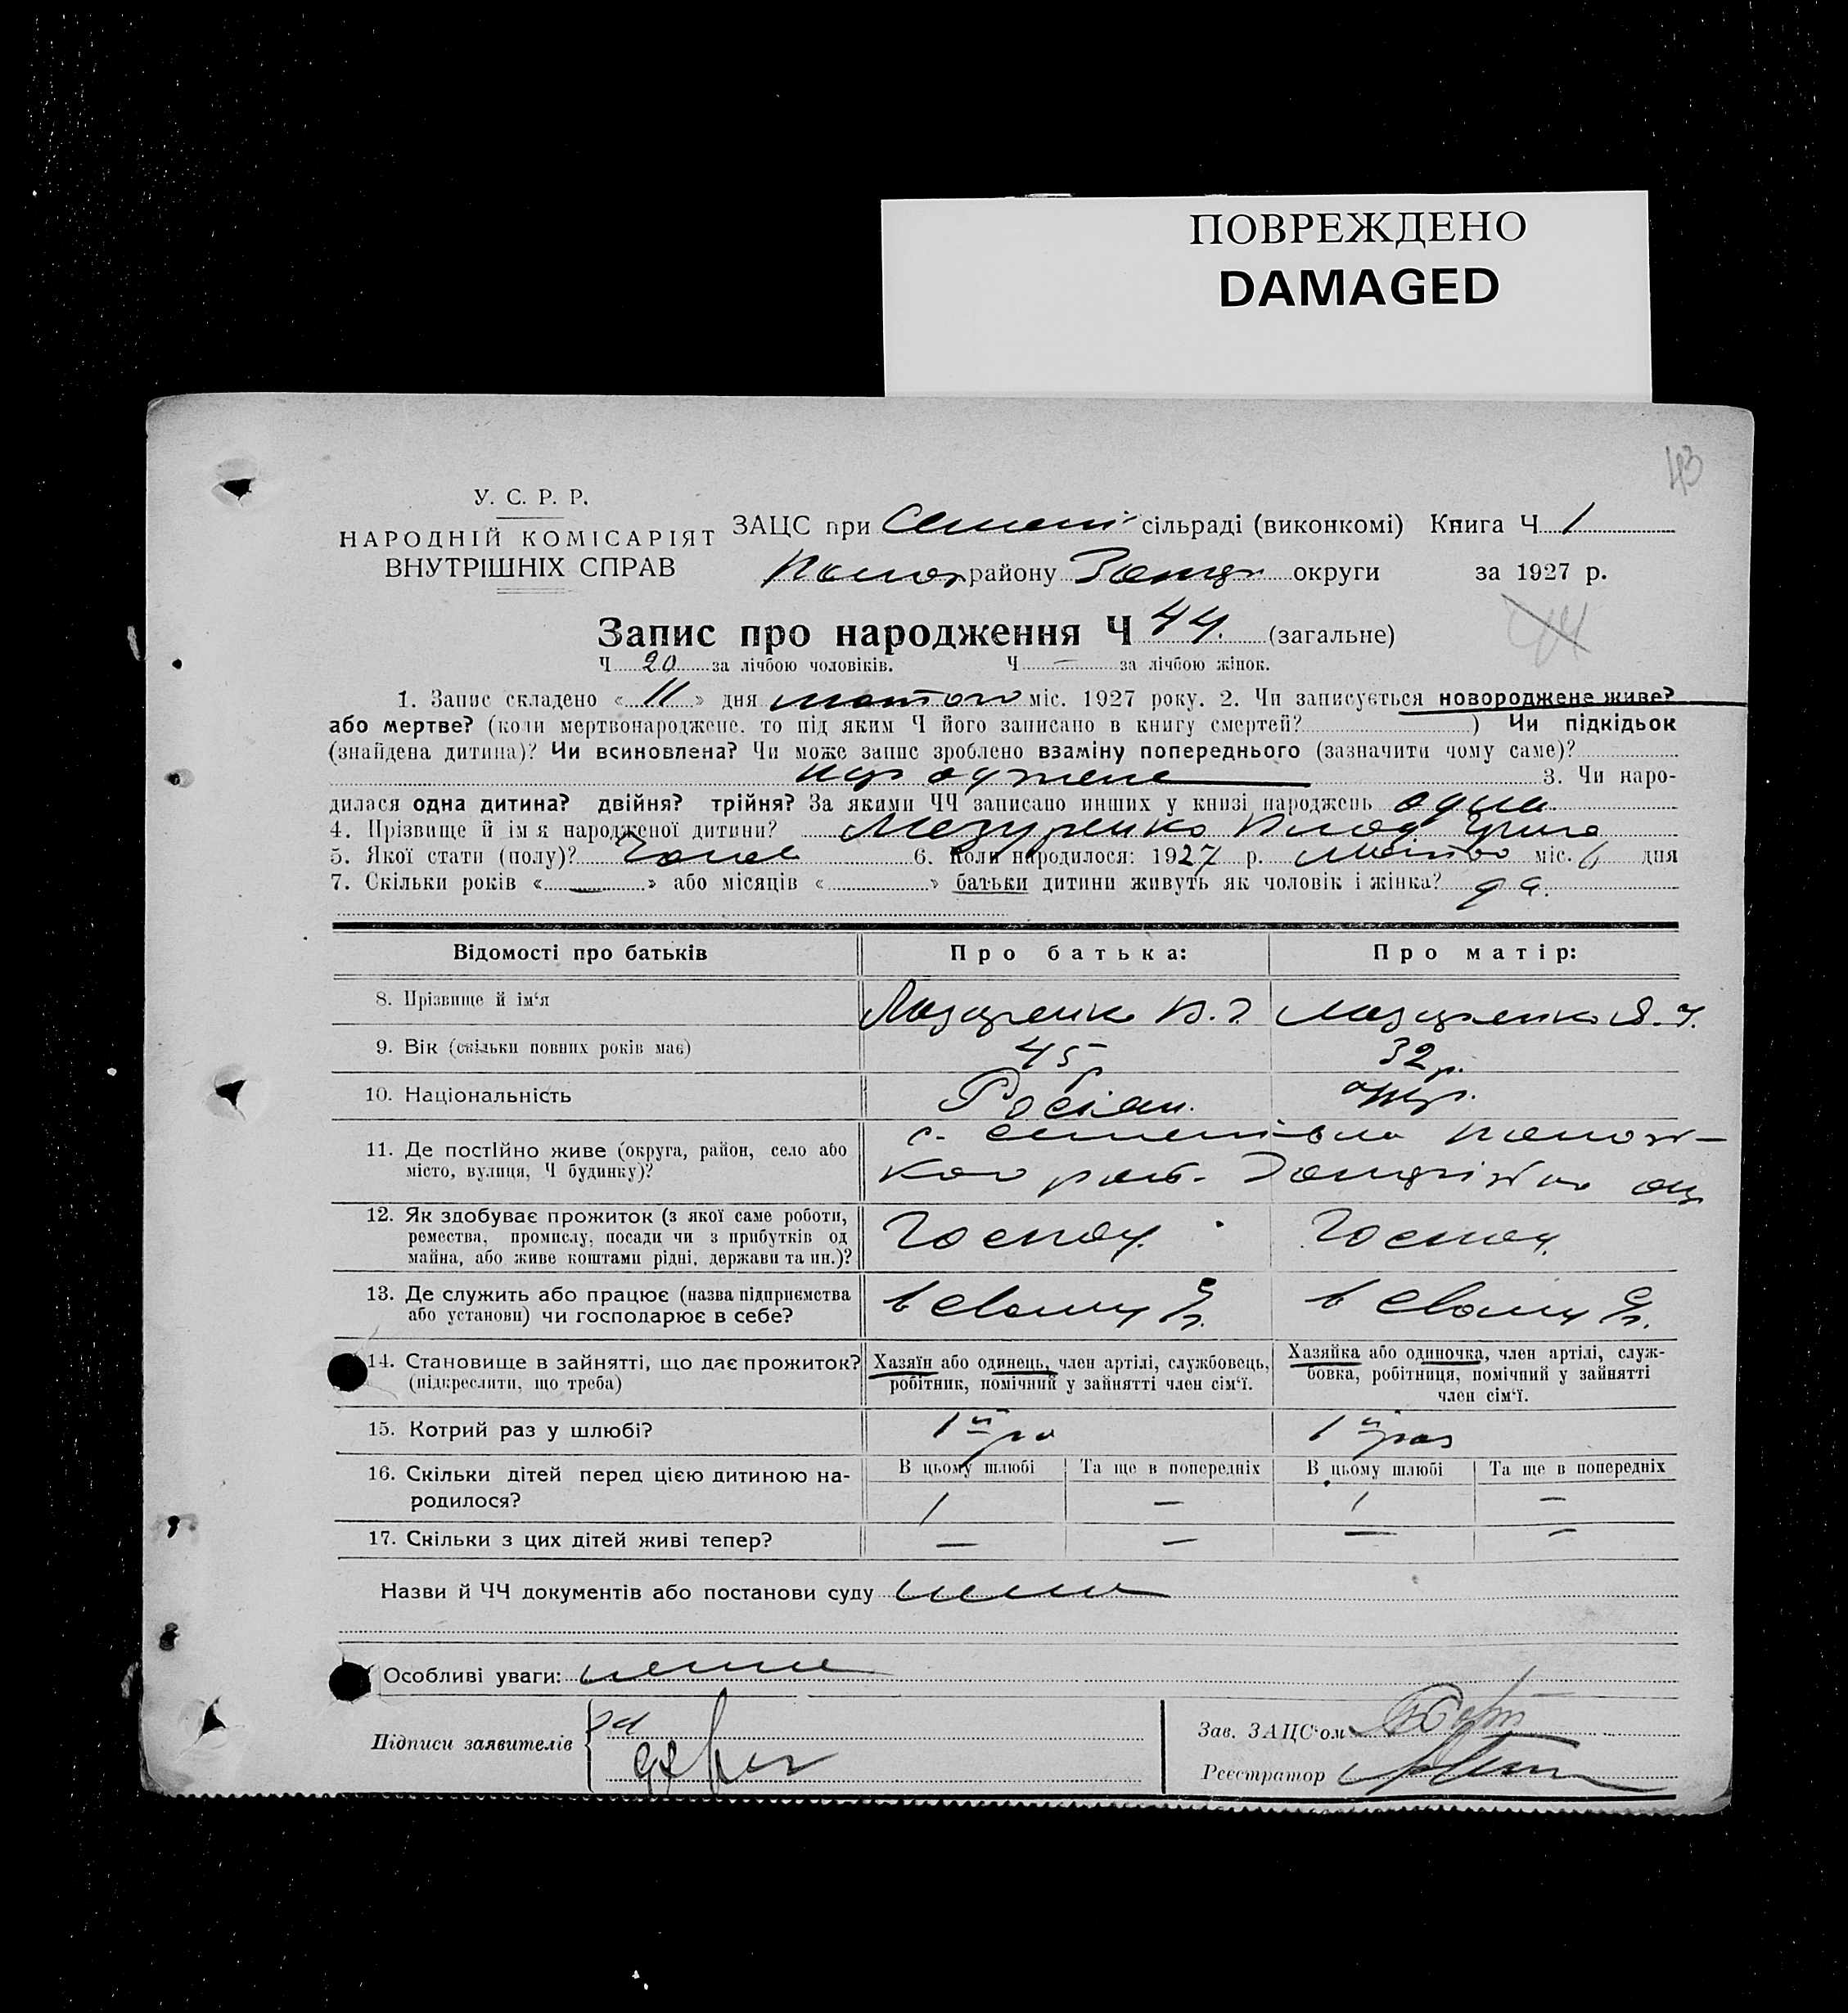 ПОВРЕЖДЕНО
DAMAGED
43
У. С. Р. Р.
НАРОДНІЙ КОМІСАРІЯТ
ВНУТРІШНІХ СПРАВ
ЗАЦС при Семені сільраді (виконкомі) Книга Ч 1
району округи за 1927 р.
Запис про народження Ч 44. (загальне)
44
Ч 20 за лічбою чоловіків. Ч — за лічбою жінок.
1. Запис складено « 11 » дня лютого міс. 1927 року. 2. Чи записується новороджене живе?
або мертве? (коли мертвонароджене, то під яким Ч його записано в книгу смертей? ) Чи підкідьок
(знайдена дитина)? Чи всиновлена? Чи може запис зроблено взаміну попереднього (зазначити чому саме)?
3. Чи наро-
дилася одна дитина? двійня? трійня? За якими ЧЧ записано инших у книзі народжень одна
4. Прізвище й ім'я народженої дитини? Мазуренко
5. Якої стати (полу)? 6. Коли народилося: 1927 р. лютого міс. 6 дня
7. Скільки років « — » або місяців « » батьки дитини живуть як чоловік і жінка? да.
Відомості про батьків Про батька: Про матір:
8. Прізвище й ім'я Мазуренко В. Мазуренко Я.
9. Вік (скільки повних років має) 45 р 32 р.
10. Національність Росіян. укр.
11. Де постійно живе (округа, район, село або
місто, вулиця, Ч будинку)?
с. Семенівка
12. Як здобуває прожиток (з якої саме роботи,
ремества, промислу, посади чи з прибутків од
майна, або живе коштами рідні, держави та ин.)?
Господ. Господ.
13. Де служить або працює (назва підприємства
або установи) чи господарює в себе?
в своему в своему
14. Становище в зайнятті, що дає прожиток?
(підкреслити, що треба)
Хазяїн або одинець, член артілі, службовець,
робітник, помічний у зайнятті член сім'ї.
Хазяйка або одиночка, член артілі, служ-
бовка, робітниця, помічний у зайнятті
член сім'ї.
15. Котрий раз у шлюбі? 1й раз 1й раз
16. Скільки дітей перед цією дитиною на-
родилося?
В цьому шлюбі Та ще в попередніх В цьому шлюбі Та ще в попередніх
1 — 1 —
17. Скільки з цих дітей живі тепер? — — — —
Назви й ЧЧ документів або постанови суду нема
Особливі уваги: нема
Підписи заявителів
Зав. ЗАЦС'ом
Реєстратор